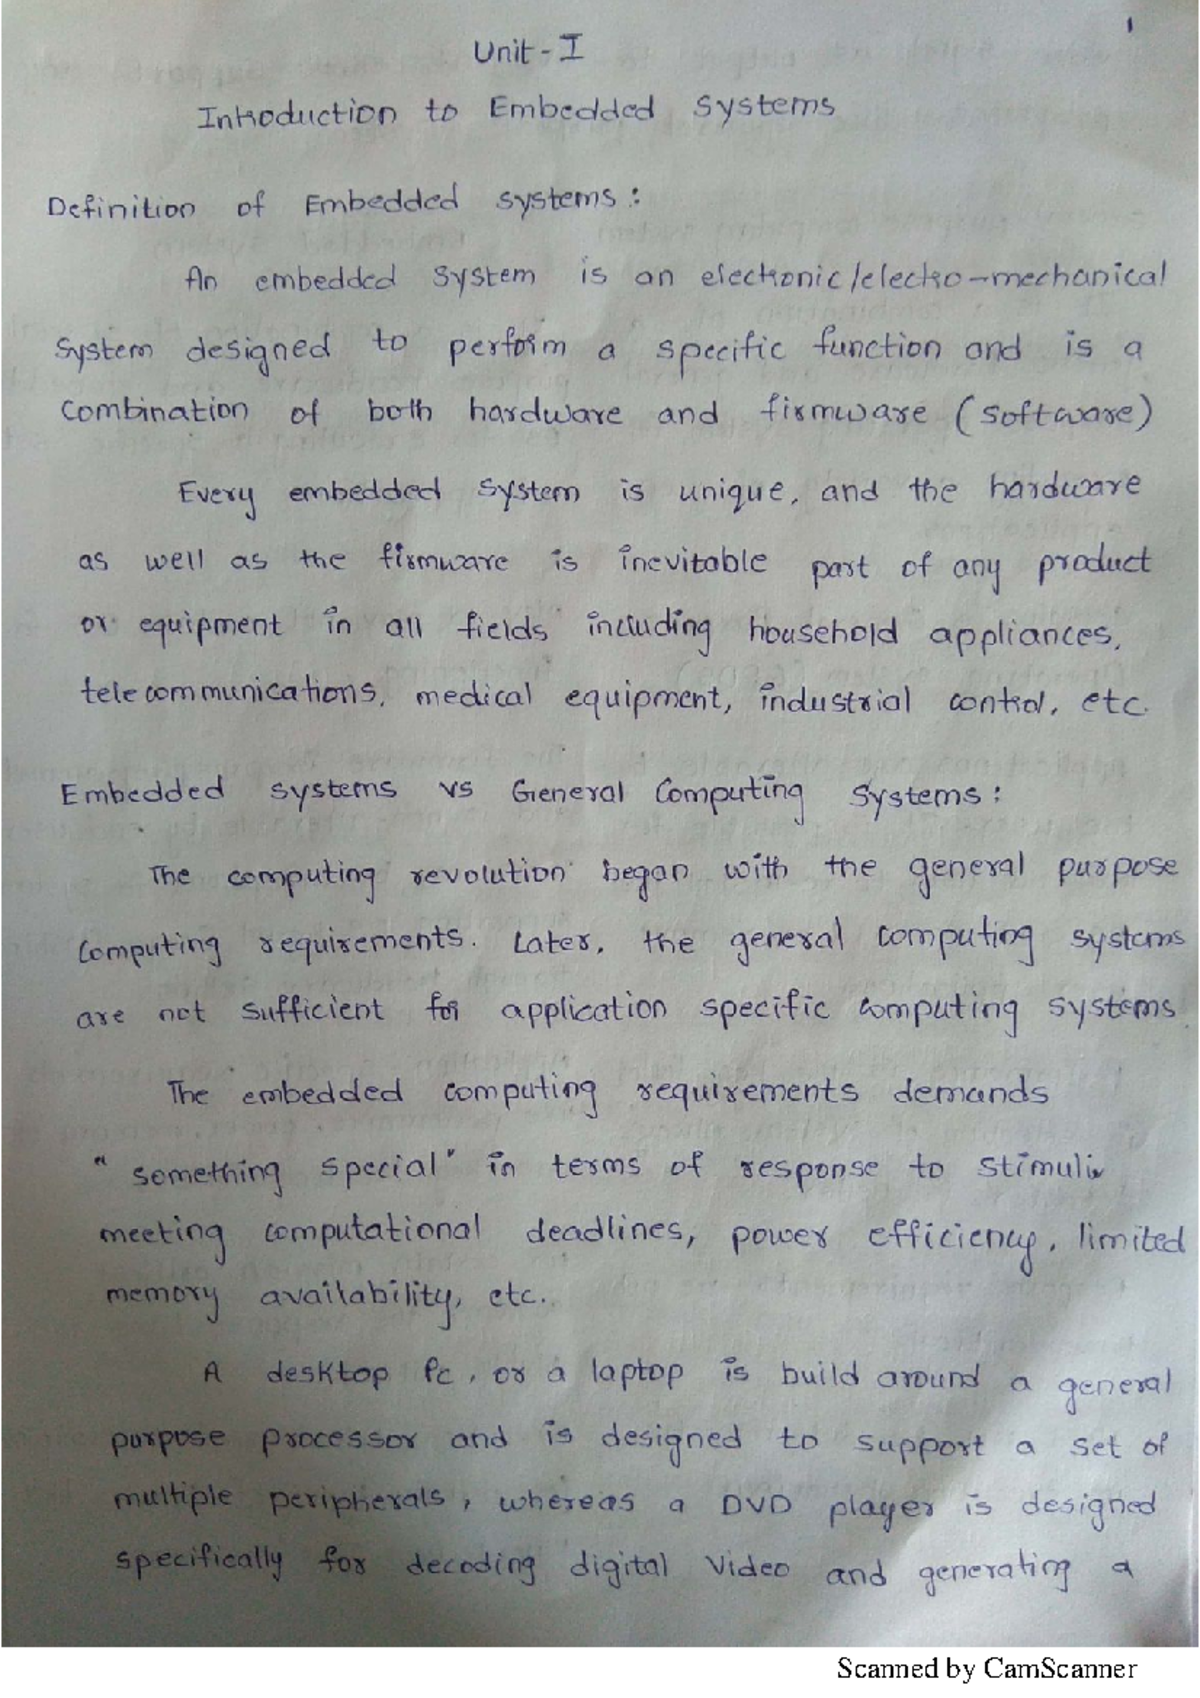 1
Unit - I
Introduction to Embedded Systems
Definition of Embedded systems :
An embedded system is an electronic/electro-mechanical
system designed to perform a specific function and is a
combination of both hardware and firmware (software)
Every embedded system is unique, and the hardware
as well as the firmware is inevitable part of any product
or equipment in all fields including household appliances,
telecommunications, medical equipment, industrial control, etc.
Embedded systems vs General Computing Systems :
The computing revolution began with the general purpose
computing requirements. Later, the general computing systems
are not sufficient for application specific computing systems
The embedded computing requirements demands
"something special" in terms of response to stimuli,
meeting computational deadlines, power efficiency, limited
memory availability, etc.
A desktop Pc, or a laptop is build around a general
purpose processor and is designed to support a set of
multiple peripherals, whereas a DVD player is designed
specifically for decoding digital video and generating a
Scanned by CamScanner